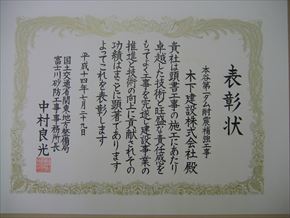 表彰状
本谷第一ダム耐震補強工事
木下建設株式会社殿
貴社は頭書工事の施工にあたり
卓越した技術と旺盛な責任感を
もってよく工事を完遂し建設事業の
推進と技術の向上に貢献されその
功績はまことに顕著であります
よってこれを表彰します
平成十四年七月二十九日
国土交通省関東地方整備局
富士川砂防工事事務所長
中村良光